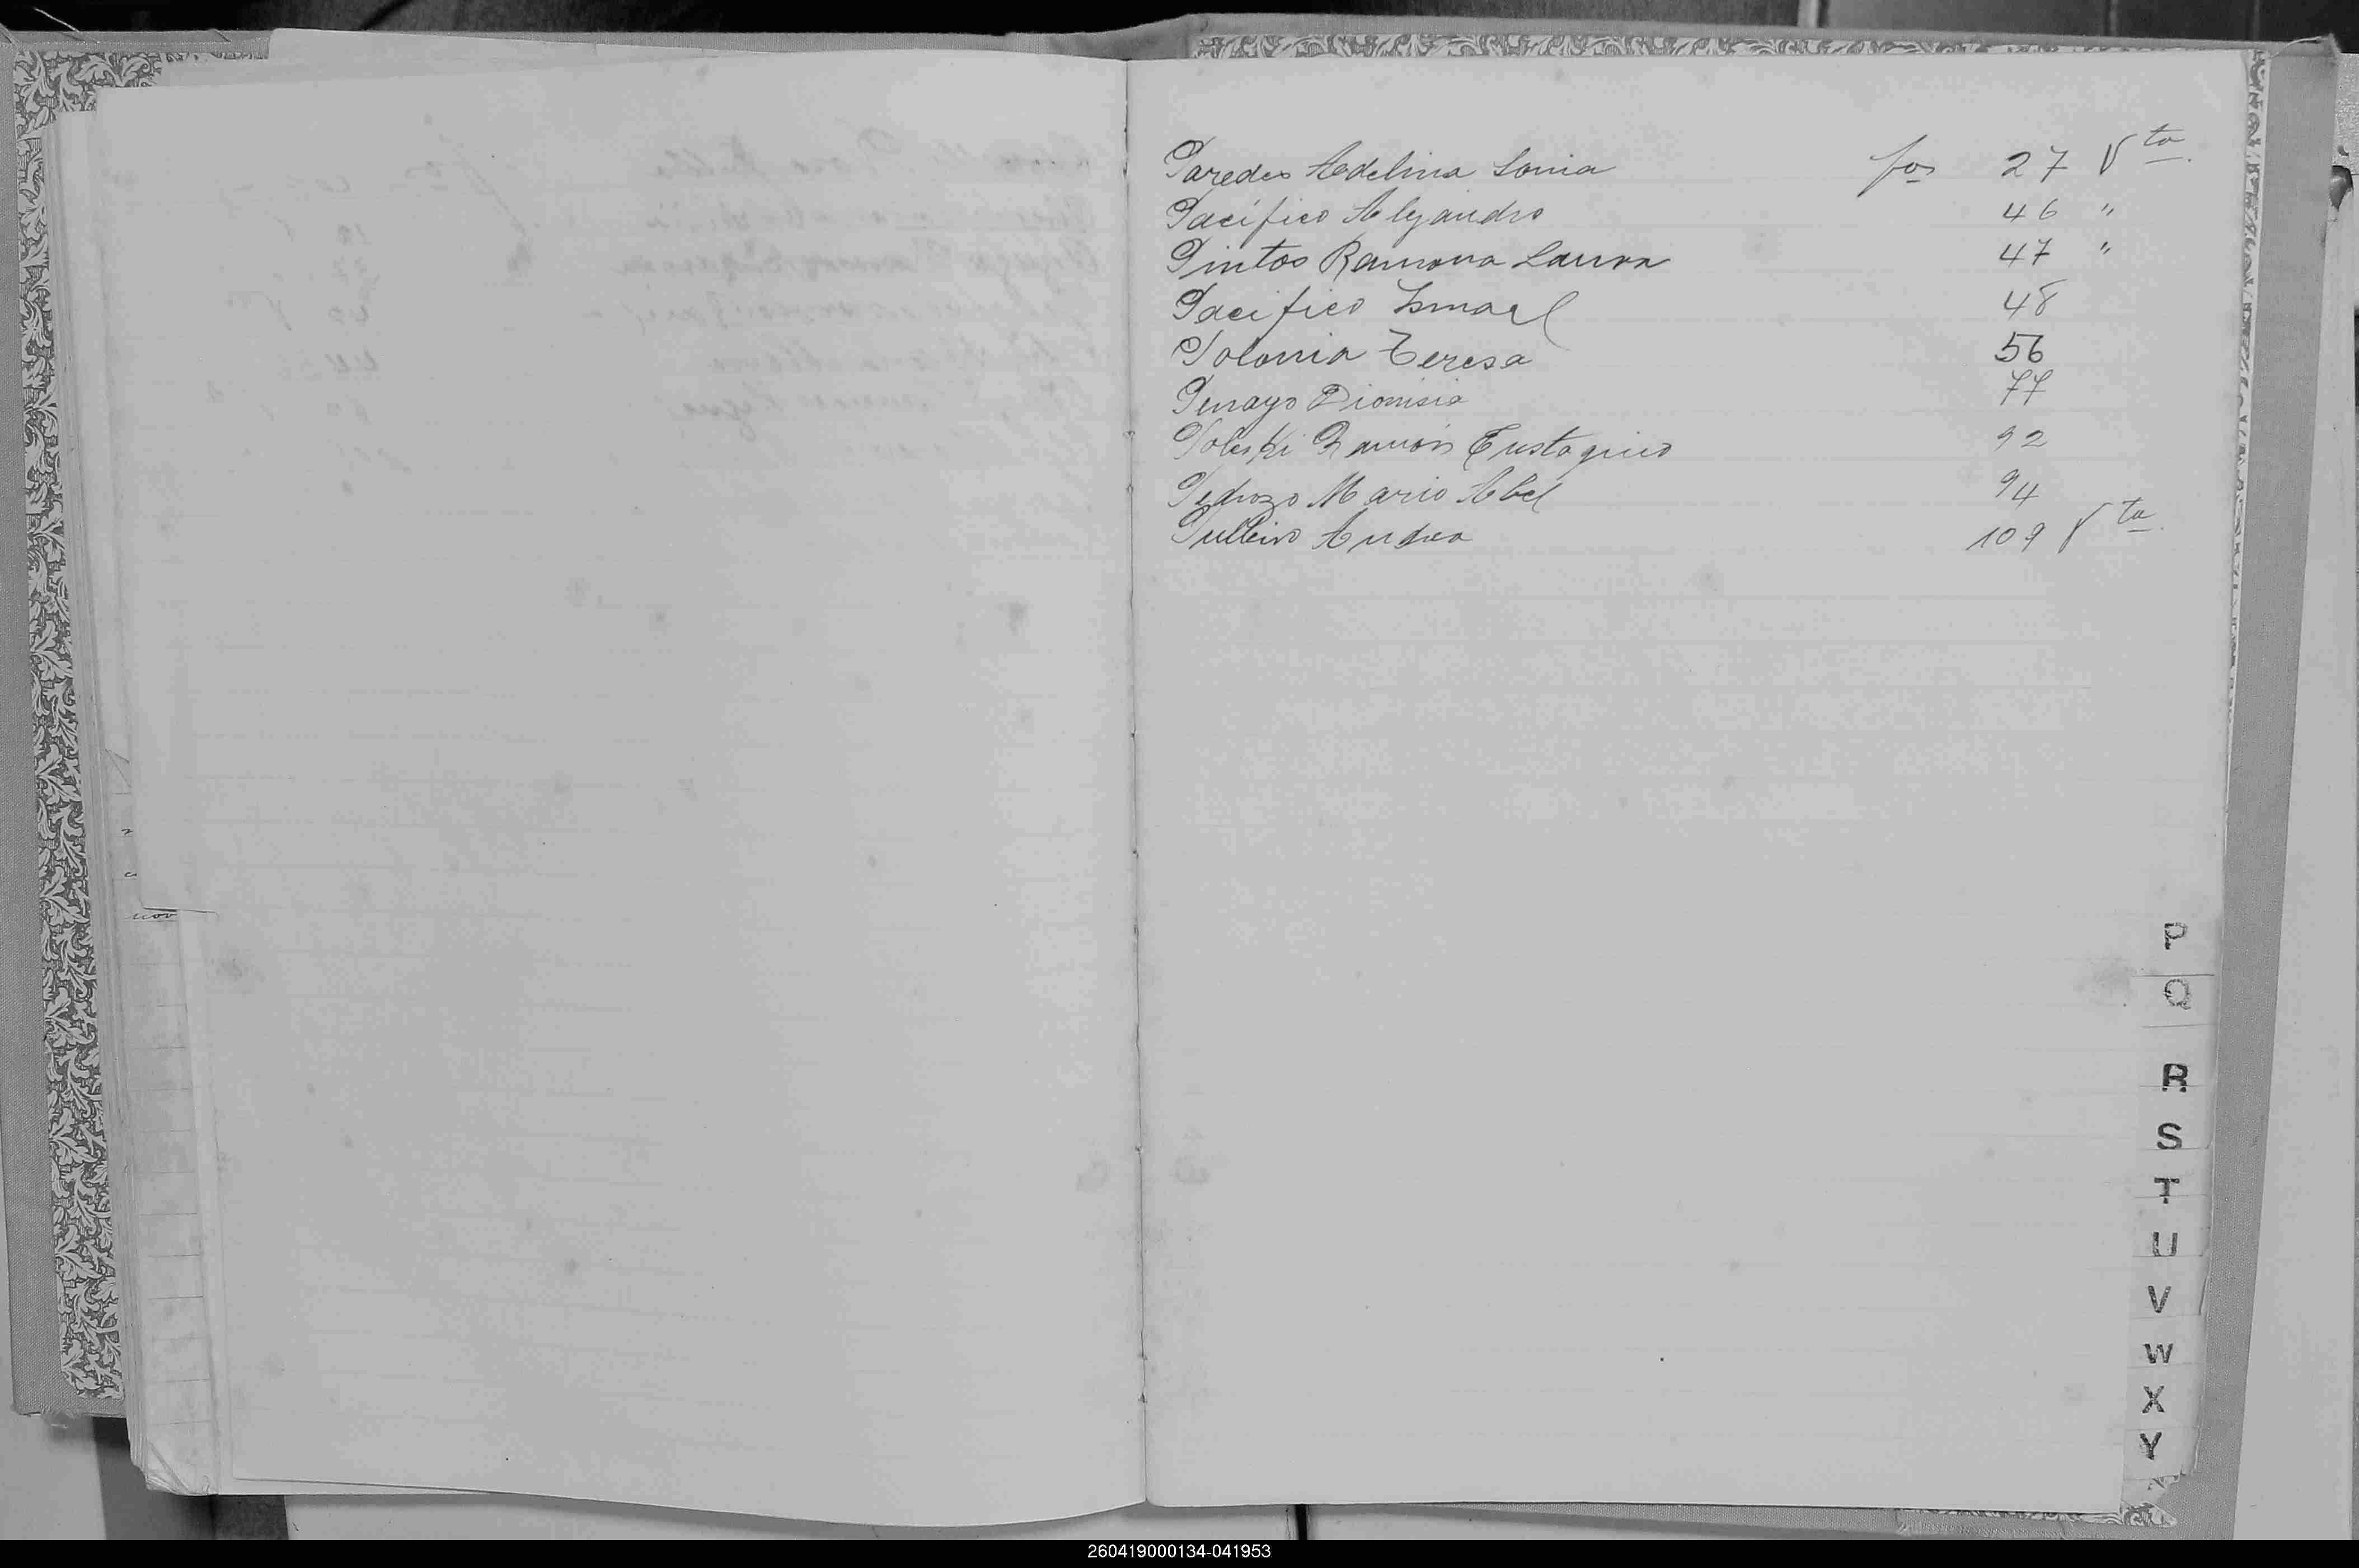 Paredes Adelina Sonia fos 27 Vta.
Pacífico Alejandro 46 "
Pintos Ramona Laura 47 "
Pacifico Ismael 48
Polonia Teresa 56
Penayo Dionisia 77
Poleski Ramón Eustaquio 92
Pedrozo Mario Abel 94
Pulleiro 109 Vta.
P
Q
R
S
T
U
V
W
X
Y
Z
260419000134-041953